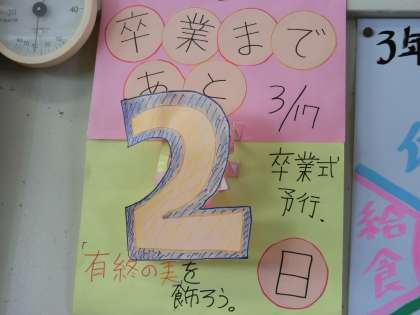 卒業まで
あと
3/17
2
卒業式
予行、
日
「有終の美を
飾ろう。
3年
給
食
40